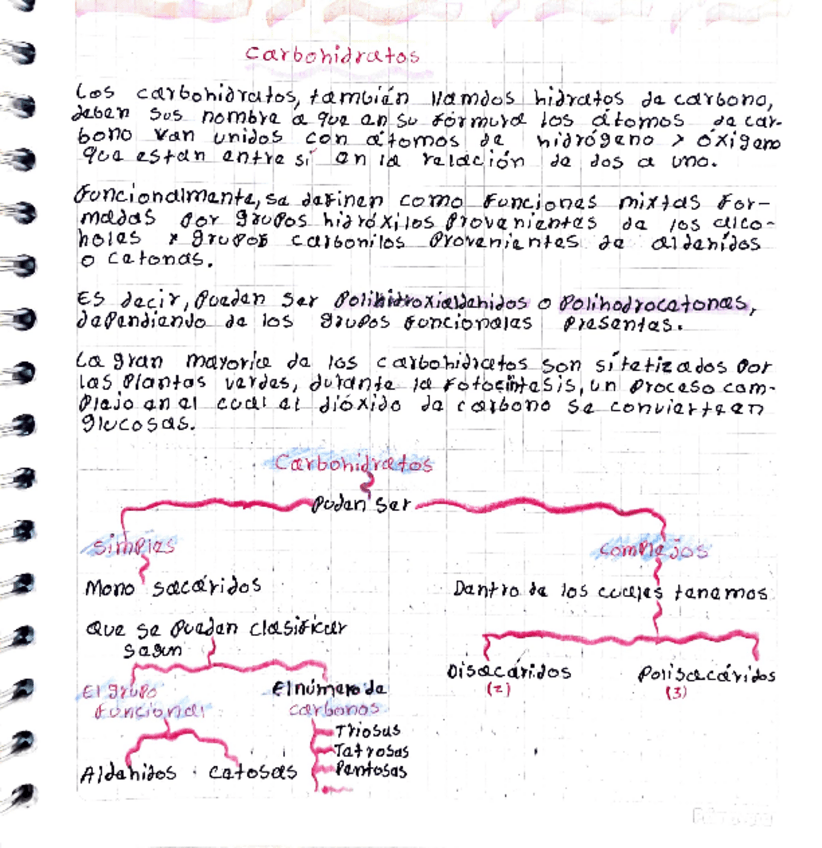 Carbohidratos
Los carbohidratos, también llamdos hidratos de carbono,
deben sus nombre a que en su formura los átomos de car-
bono van unidos con átomos de hidrógeno y óxigeno
que estan entre sí en la relación de dos a uno.
Funcionalmente, se definen como funciones mixtas for-
madas por grupos hidróxilos provenientes de los alco-
holes y grupos carbonilos provenientes de aldehidos
o cetonas.
Es decir, pueden ser polihidroxialdehidos o polihodrocetonas,
dependiendo de los grupos funcionales presentes.
La gran mayoria de los carbohidratos son sitetizados por
las plantas verdes, durante la fotocintesis, un proceso com-
plejo en el cual el dióxido de carbono se convierte en
glucosas.
Carbohidratos
puden ser
simples
complejos
Mono sacáridos
Dentro de los cuales tenemos
Que se pueden clasificar
segun
Disacáridos
Polisacáridos
(2)
(3)
El grupo
funcional
El número de
carbonos
Triosas
Tetrosas
Aldehidos
cetosas
Pentosas